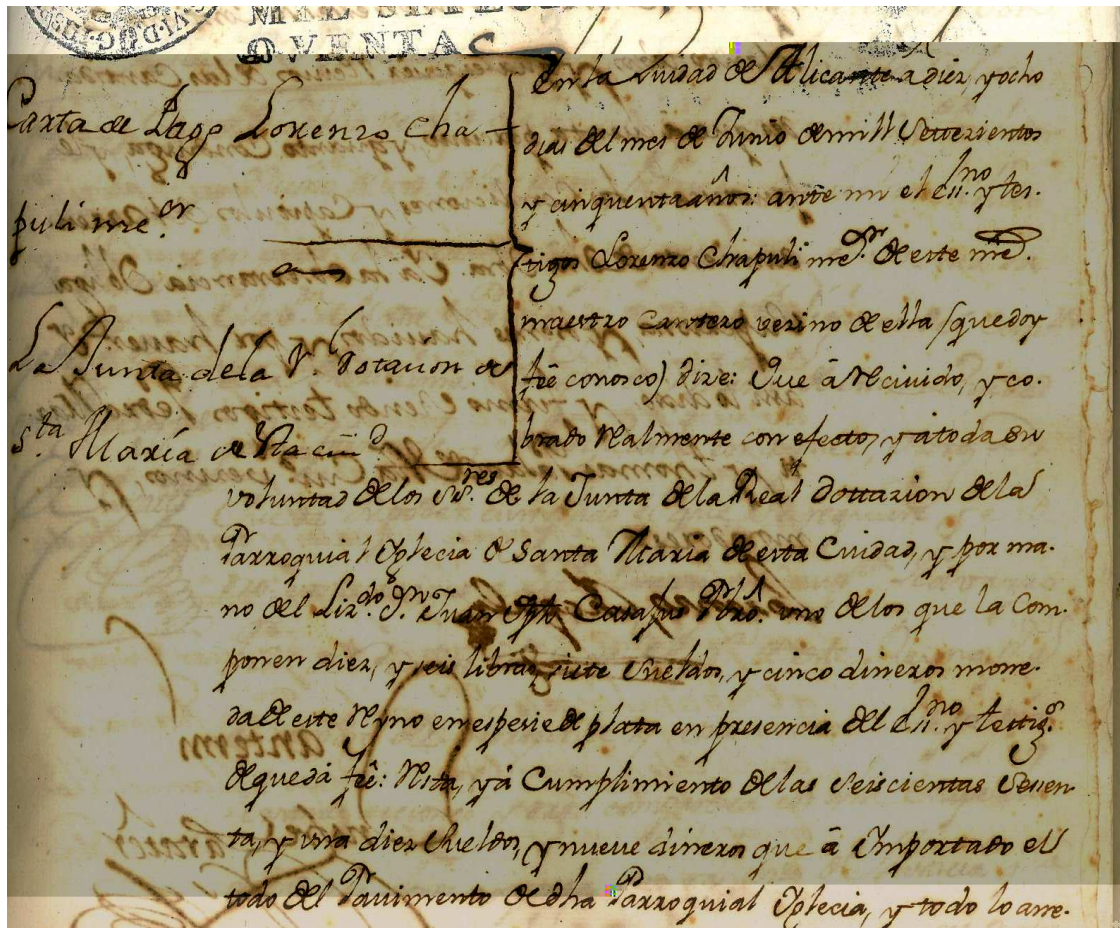 MIL SETECI
OVENTA
Carta de Pago Lorenzo Cha-
puli me.or
La Junta dela R. Dotacion de
Sta. María de sta ciud
En la Ciudad de Alicante a diez, y ocho
dias del mes de Junio de mill Settezientos
y cinquenta años: ante mi el Essno. y tes-
tigos Lorenzo Chapuli me.or de este nre.
maestro Cantero vezino de ella (que doy
feê conosco) dize: Que â Recivido, y co-
brado Realmente con efecto, y a toda su
voluntad de los SS.res de la Junta dela Real Dottazion dela
Parroquial Yglecia de Santa Maria de esta Cuidad, y por ma-
no del Liz.do Dn. Juan Bpta Casapus Pbro. uno de los que la Com-
ponen diez, y seis libras, siete Sueldos, y cinco dineros mone-
da de este Reyno en espesie de plata en presencia del Essno. y testigs.
de que dá feê: Resta, y á Cumplimiento de las Seiscientas Sesen-
ta, y una diez Sueldos, y nueve dineros que â Importado el
todo del Pavimento de dha Parroquial Yglecia, y todo lo arre-